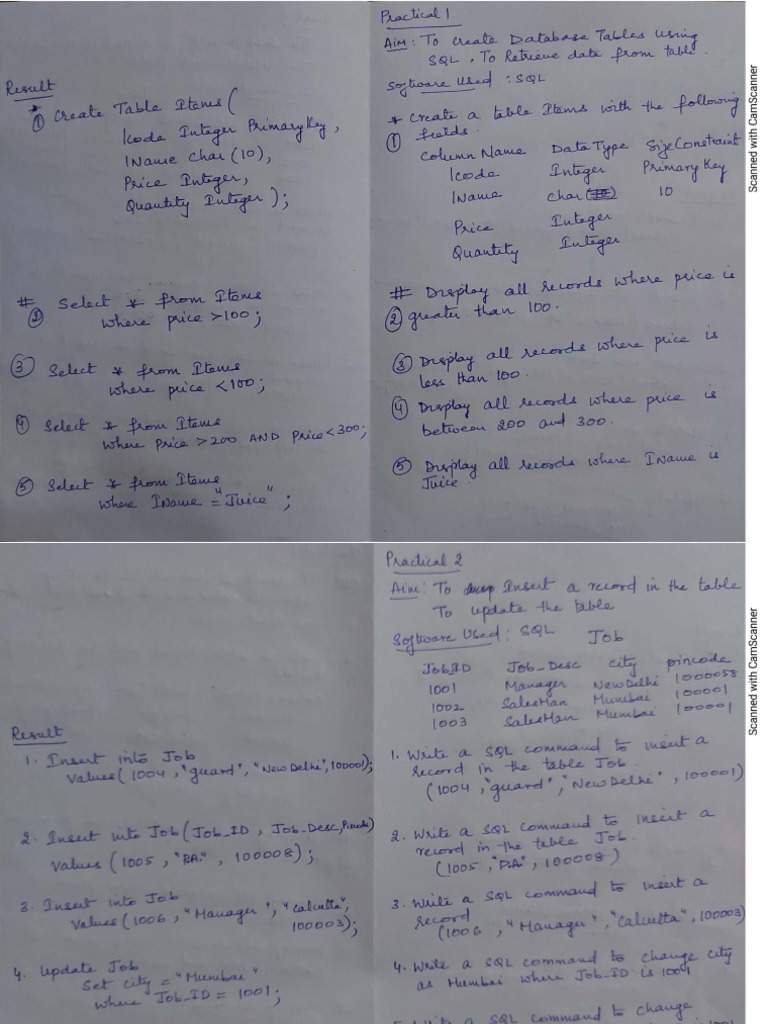 Practical 1
Aim : To create Database Tables using
SQL , To Retrieve data from table .
Software Used : SQL
* Create a table Items with the following
① fields .
Column Name Data Type Size Constraint
Icode Integer Primary Key
IName Char 10
Price Integer
Quantity Integer
# Display all records where price is
② greater than 100 .
③ Display all records where price is
less than 100 .
④ Display all records where price is
between 200 and 300 .
⑤ Display all records where IName is
Juice
Result
*
① Create Table Items (
Icode Integer Primary Key ,
IName Char (10),
Price Integer,
Quantity Integer ) ;
# Select * from Items
② where price >100 ;
③ Select * from Items
where price <100 ;
④ Select * from Items
where Price >200 AND Price <300;
⑤ Select * from Items
where IName = "Juice" ;
Scanned with CamScanner
Practical 2
Aim : To Insert a record in the table
To update the table
Software Used : SQL Job
Job_ID Job_Desc city pincode
1001 Manager New Delhi 1000058
1002 SalesMan Mumbai 100001
1003 SalesMan Mumbai 100001
1. Write a SQL command to insert a
record in the table Job .
(1004 , "guard" , "New Delhi" , 100001)
2. Write a SQL command to insert a
record in the table Job .
(1005 , , 100008 )
3. Write a SQL command to insert a
record
(1006 , "Manager" , "Calcutta" , 100003)
4. Write a SQL command to change city
as Mumbai where Job_ID is 1001
SQL command to change
Result
1. Insert into Job
values ( 1004 , "guard" , "New Delhi" , 100001);
2. Insert into Job ( Job_ID , Job_Desc, Pincode)
values ( 1005 , , 100008 ) ;
3. Insert into Job
values ( 1006 , "Manager" , "Calcutta",
100003);
4. Update Job
Set city = "Mumbai"
where Job_ID = 1001 ;
Scanned with CamScanner